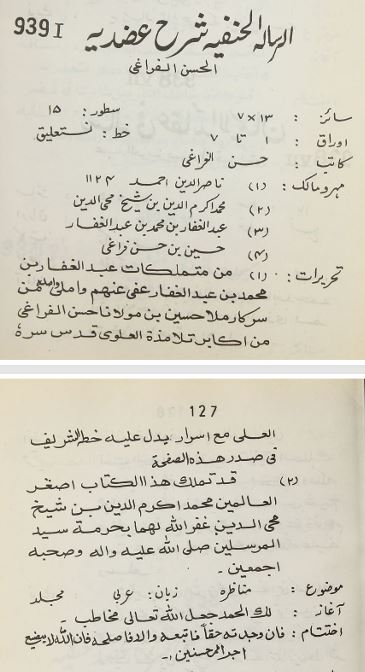 939 I
الرسالة الحنفيه شرح عضديه
الحسن الفراغی
سائز : ۱۳ × ۷ سطور : ۱۵
اوراق : ۱ تا ۷ خط : نستعلیق
کاتب : حسن الفراغی
مہر و مالک : (۱) ناصر الدین احمد ۱۱۲۴
(۲) محمد اکرم الدین بن شیخ محی الدین
(۳) عبد الغفار بن محمد بن عبد الغفار
(۴) حسین بن حسن فراغی
تحریرات : (۱) من متملکات عبد الغفار بن
محمد بن عبد الغفار عفی عنهم واملی واملح ممن
سرکار ملا حسین بن مولانا حسن الفراغی
من اکابر تلامذة العلوی قدس سره
127
العلی مع اسرار یدل علیه خطه الشریف
فی صدر هذه الصفحة
(۲) قد تملک هذا الکتاب اصغر
العالمین محمد اکرم الدین بن شیخ
محی الدین غفر الله لهما بحرمة سید
المرسلین صلی الله علیه واله وصحبه
اجمعین ۔
موضوع : مناظره زبان : عربی مجلد
آغاز : لک الحمد جعل الله تعالی مخاطب ۔
اختتام : فان وجدته حقا فاتبعه والا فاصلحه فان الله لا یضیع
اجر المحسنین ۔